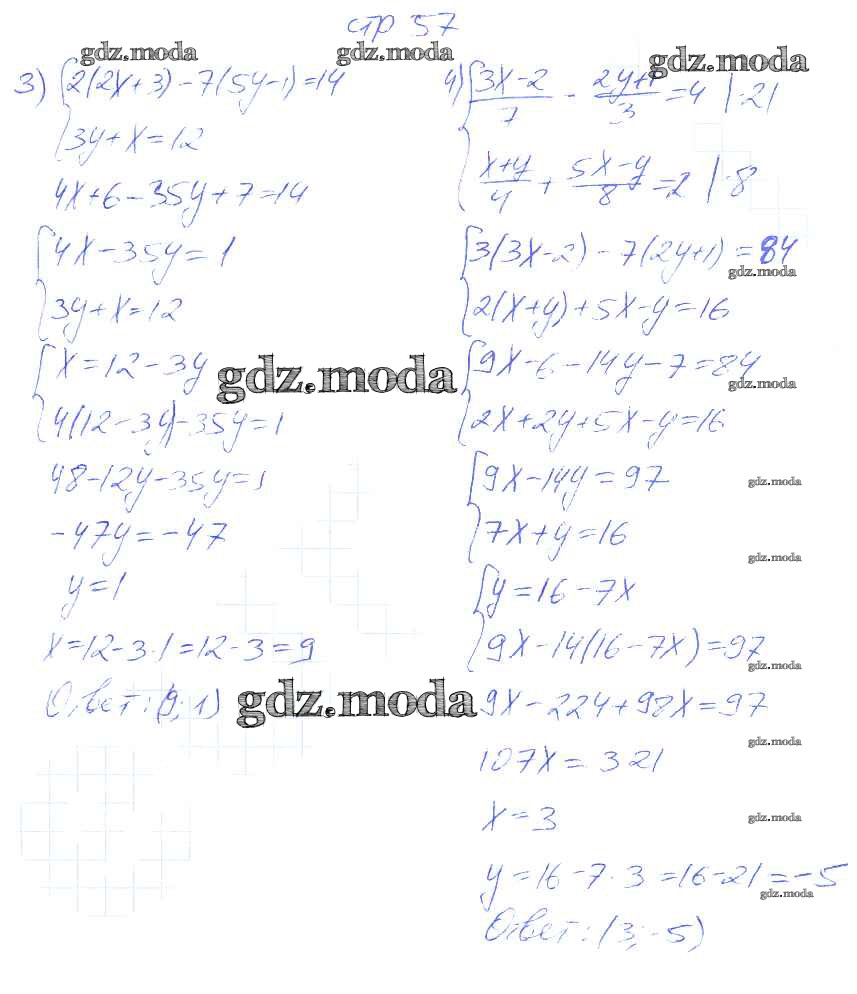 стр 57
gdz.moda gdz.moda gdz.moda
3) { 2(2x+3) - 7(5y-1) = 14
3y + x = 12
4x + 6 - 35y + 7 = 14
{ 4x - 35y = 1
3y + x = 12
{ x = 12 - 3y
gdz.moda
4(12 - 3y) - 35y = 1
48 - 12y - 35y = 1
-47y = -47
y = 1
x = 12 - 3·1 = 12 - 3 = 9
Ответ: (9; 1)
gdz.moda
4) { (3x-2)/7 - (2y+1)/3 = 4 | ·21
(x+y)/4 + (5x-y)/8 = 2 | ·8
{ 3(3x-2) - 7(2y+1) = 84
gdz.moda
2(x+y) + 5x - y = 16
{ 9x - 6 - 14y - 7 = 84
gdz.moda
2x + 2y + 5x - y = 16
{ 9x - 14y = 97
gdz.moda
7x + y = 16
gdz.moda
{ y = 16 - 7x
9x - 14(16 - 7x) = 97
gdz.moda
9x - 224 + 98x = 97
gdz.moda
107x = 321
x = 3
gdz.moda
y = 16 - 7·3 = 16 - 21 = -5
gdz.moda
Ответ: (3; -5)